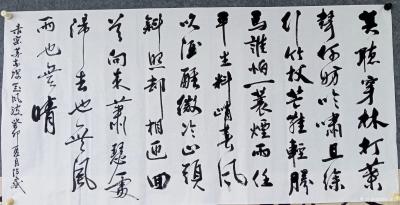 莫聽穿林打葉
聲何妨吟嘯且徐
行竹杖芒鞋輕勝
馬誰怕一蓑煙雨任
平生料峭春風
吹酒醒微冷山頭
斜照却相迎回
首向來蕭瑟處
歸去也無風
雨也無晴